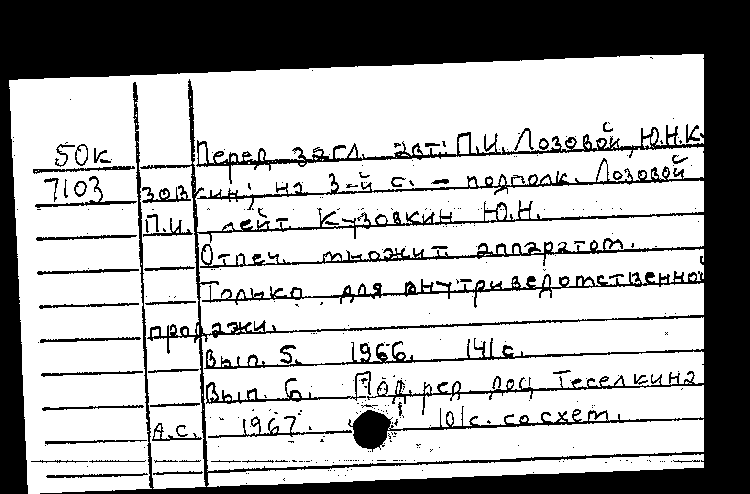 50к Перед загл. авт: П.И. Лозовой, Ю.Н.Ку-
7103 зовкин; на 3-й с. - подполк. Лозовой
П.И., лейт Кузовкин Ю.Н.
Отпеч. множит. аппаратом.
Только для внутриведомственной
продажи.
Вып. 5. 1966. 141 с.
Вып. 6. Под ред. доц Теселкина
А.С. 1967. 101 с. со схем.